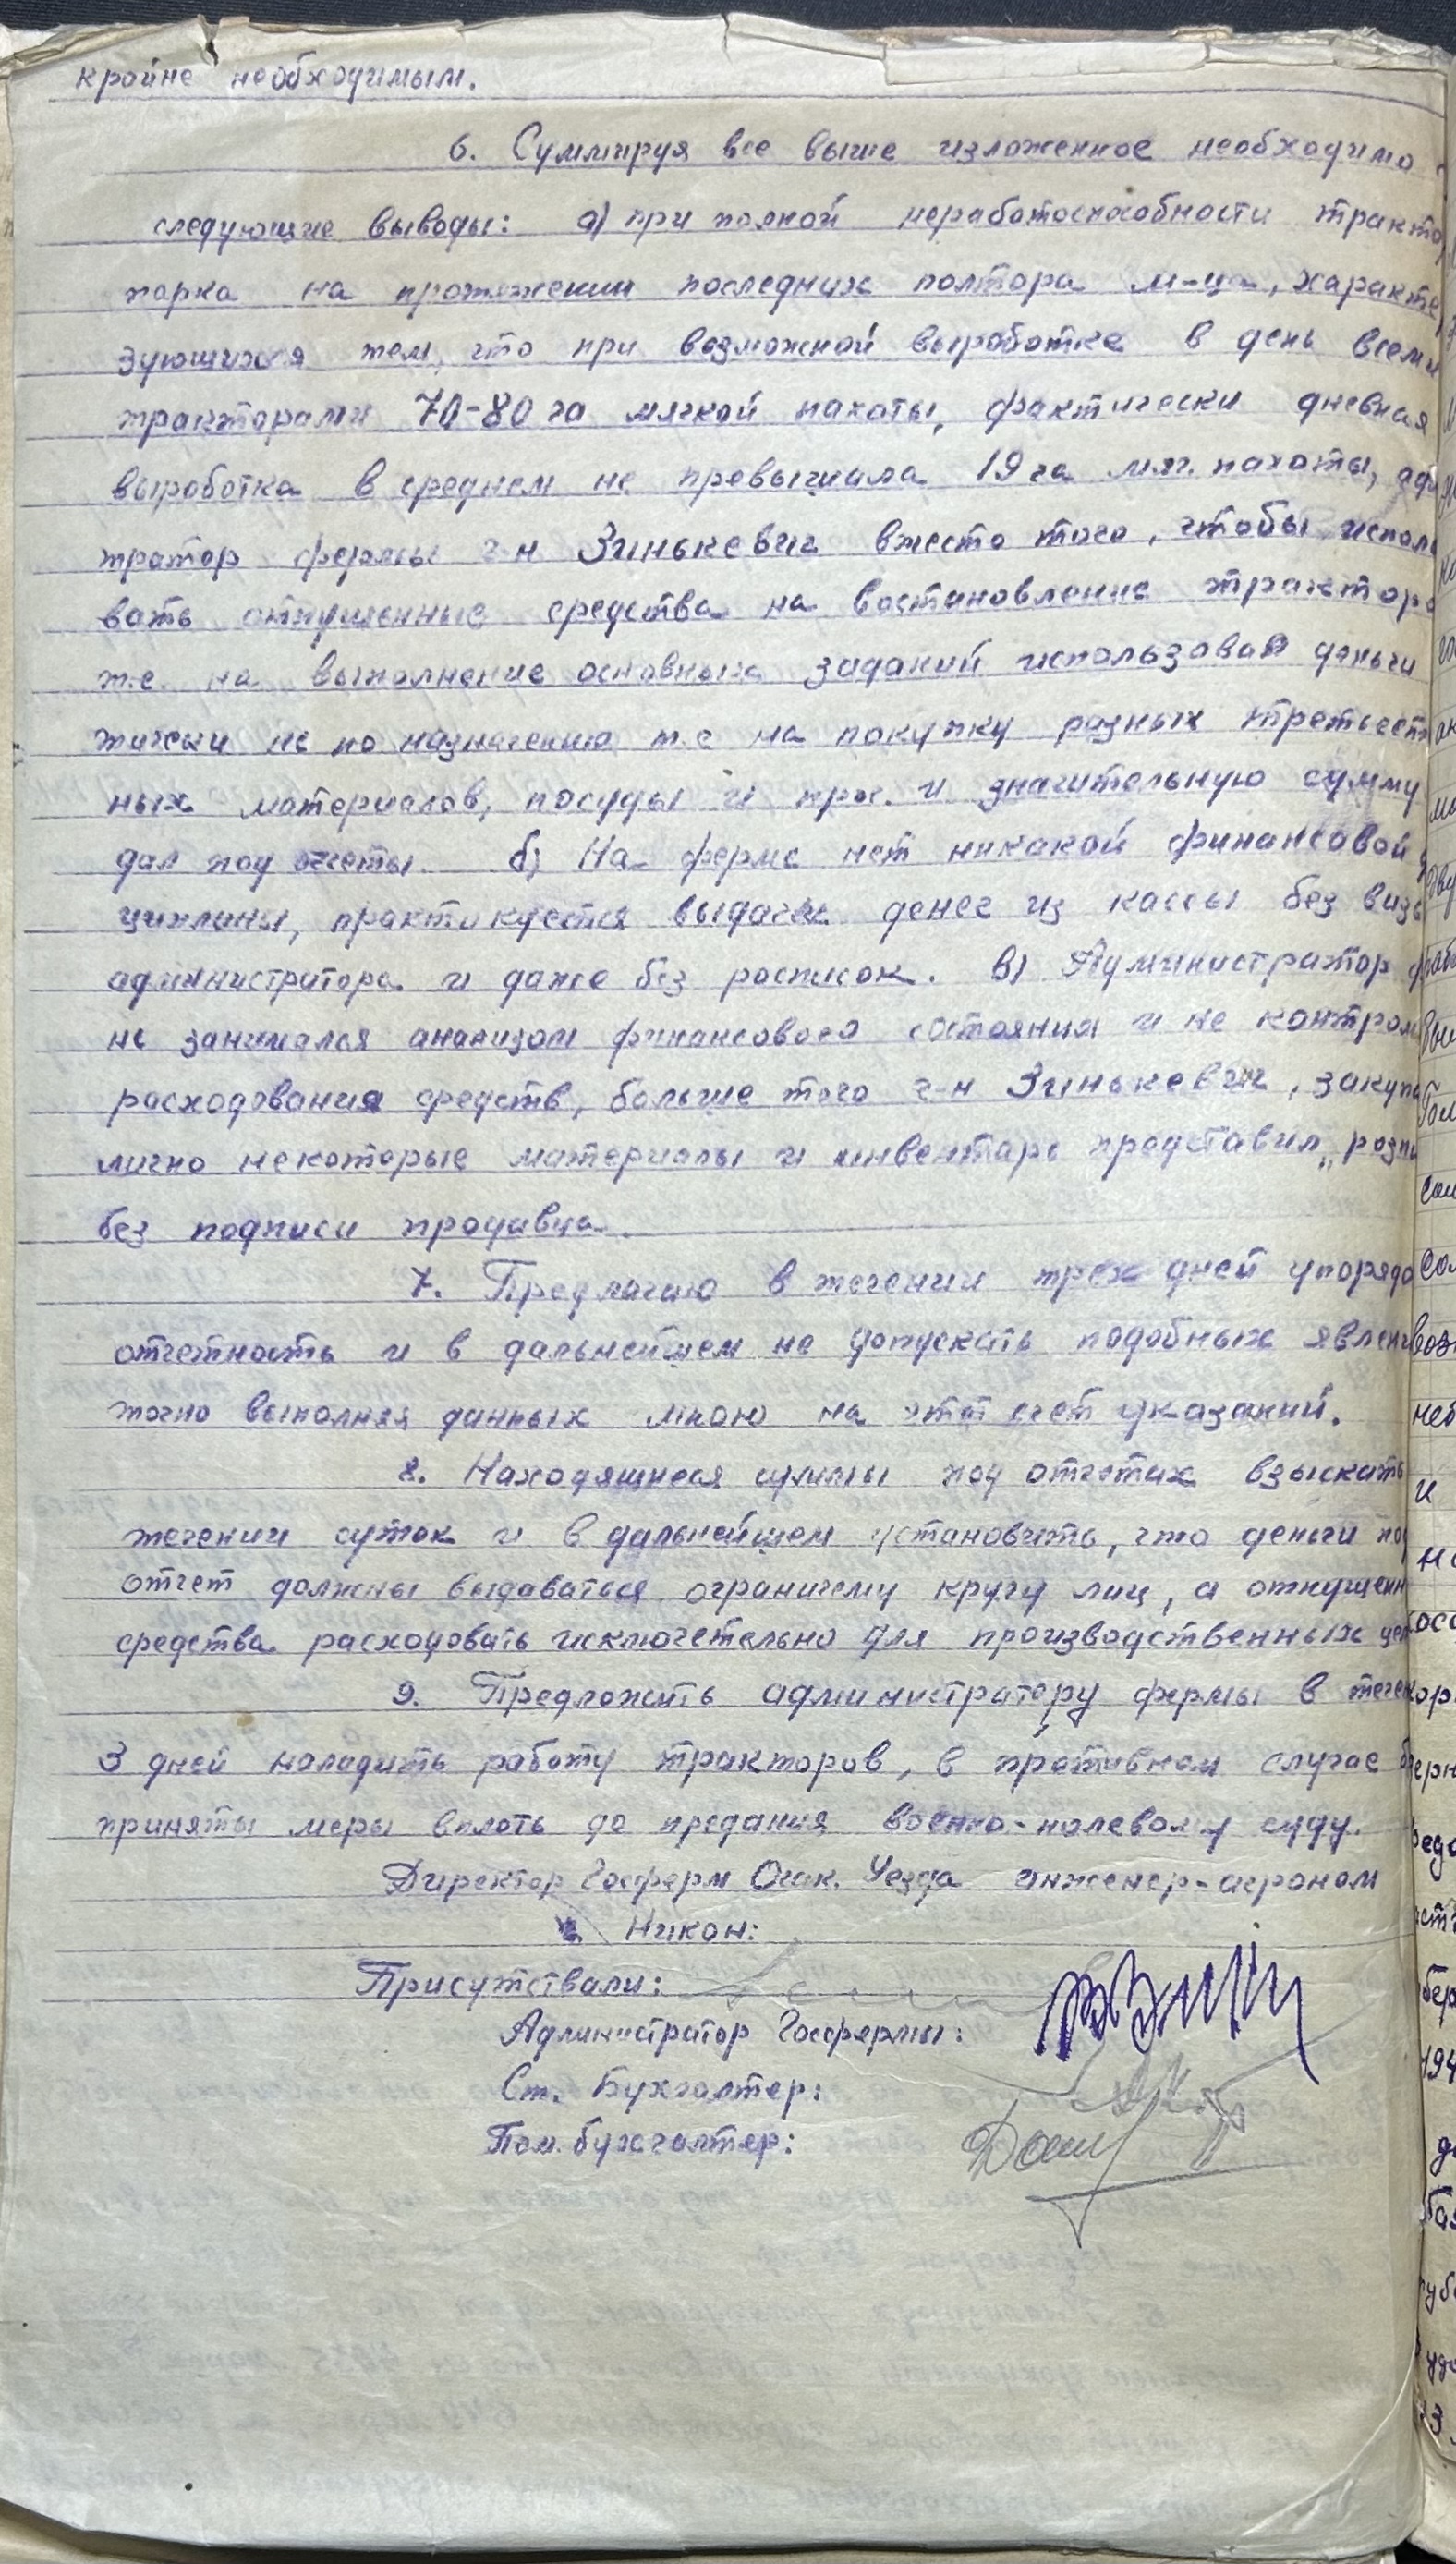 крайне необходимым.
6. Суммируя все выше изложенное необходимо
следующие выводы: а) при полной неработоспособности тракто
парка на протяжении последних полтора м-ца, характе
зующихся тем, что при возможной выработке в день всеми
тракторами 70-80 га мягкой пахоты, фактически дневная
выработка в среднем не превышала 19 га мяг. пахоты, адм
тратор фермы г-н Зинькевич вместо того, чтобы исполь
вать отпущенные средства на востановление тракторо
т.е. на выполнение основных заданий использовал деньги
тически не по назначению т.е на покупку разных третьест
ных материалов, посуды и проч. и значительную сумму
дал под отчеты. б) На ферме нет никакой финансовой
циплины, практикуется выдача денег из кассы без визы
администратора и даже без росписок. в) Администратор ф
не занимался анализом финансового состояния и не контрол
расходования средств, больше того г-н Зинькевич, закупа
лично некоторые материалы и инвентарь представил „розпи
без подписи продавца.
7. Предлагаю в течении трех дней упорядо
отчетность и в дальнейшем не допускать подобных явлени
точно выполняя данных мною на этот счет указаний.
8. Находящиеся суммы под отчетах взыскать
течении суток и в дальнейшем установить, что деньги под
отчет должны выдаваться ограничему кругу лиц, а отпущенн
средства расходовать исключетельно для производственных цел
9. Предложить администратору фермы в течен
3 дней наладить работу тракторов, в противном случае б
приняты меры вплоть до предания военно-полевому суду.
Директор Госферм Очак. Уезда инженер-агроном
Никон:
Присутствали:
Администратор Госфермы:
Ст. Бухгалтер:
Пом. бухгалтер: